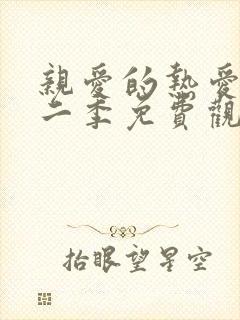 親愛的熱愛
二季免費觀
抬眼望星空